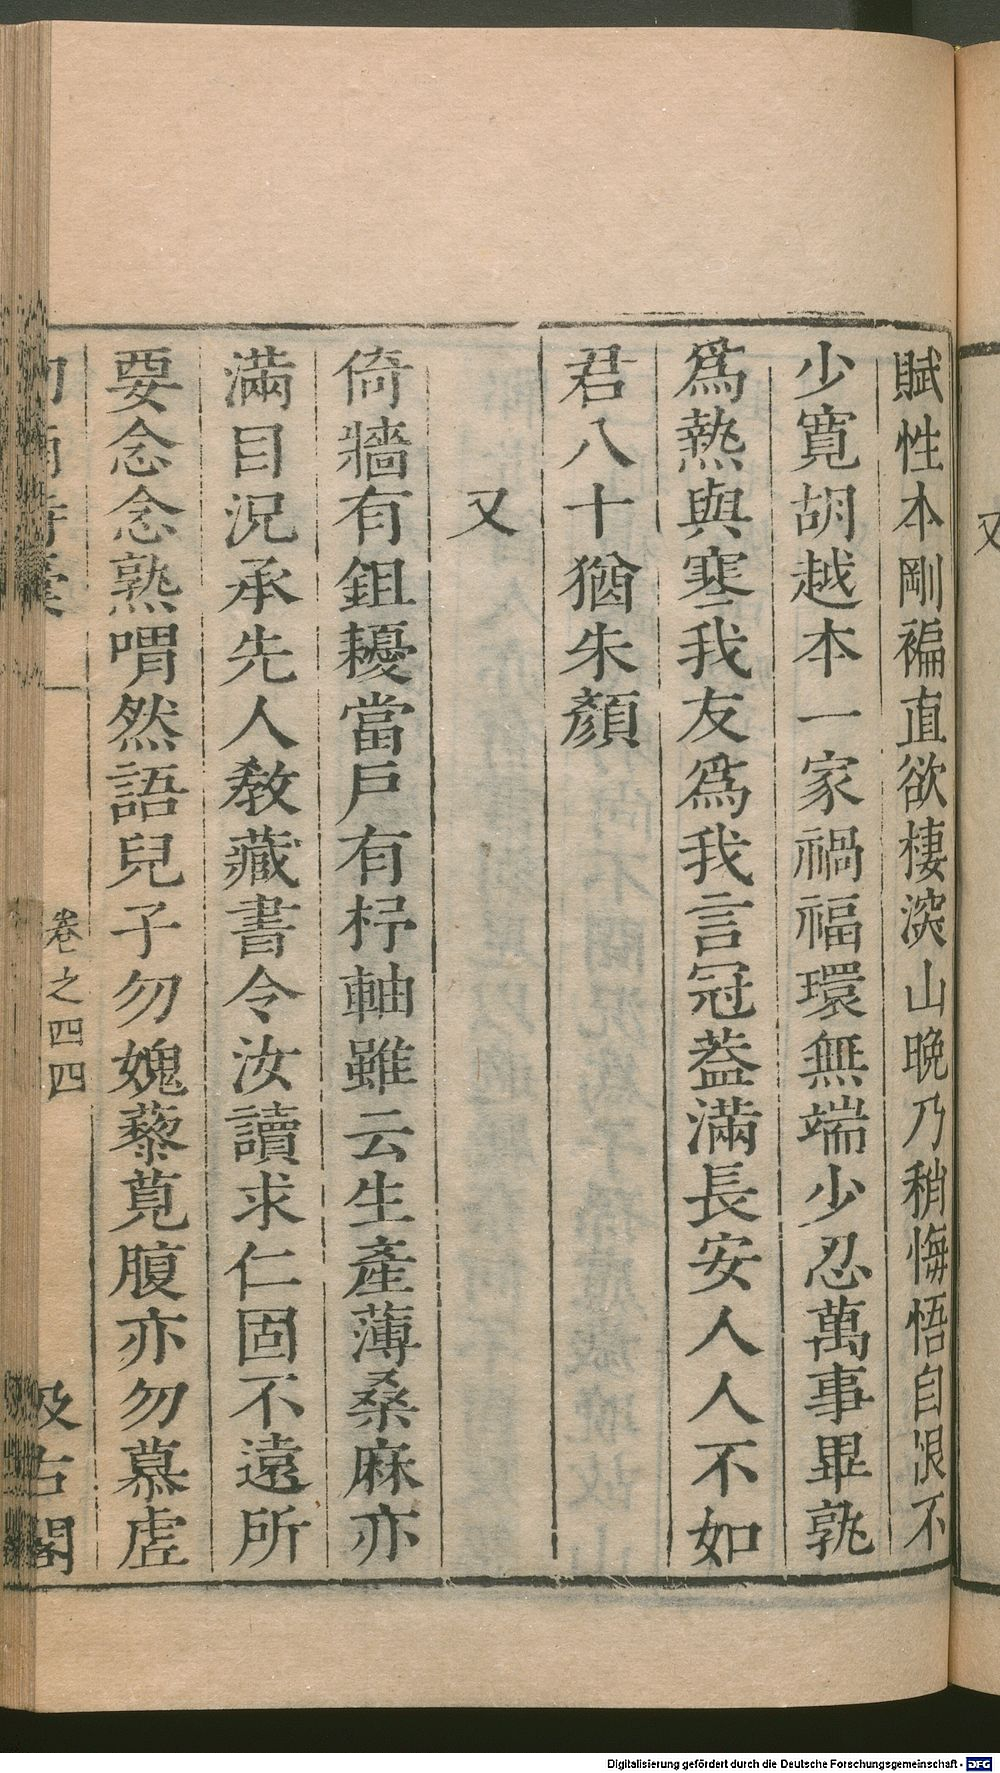 又
賦性本剛褊直欲棲深山晚乃稍悔悟自浪不
少寬胡越本一家禍福環無端少忍萬事畢孰
爲熱與寒我友爲我言冠葢滿長安人人不如
君八十猶朱顏
又
倚牆有鉏耰當戶有杼軸雖云生產薄桑麻亦
滿目況承先人教藏書令汝讀求仁固不遠所
要念念熟喟然語兒子勿媿藜莧腹亦勿慕虛
劒南詩稾
卷之四四
汲古閣
Digitalisierung gefördert durch die Deutsche Forschungsgemeinschaft - DFG